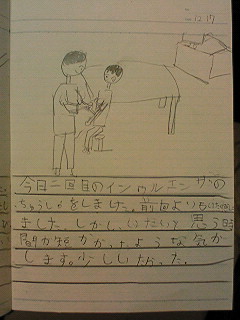 二、12、17
今日二回目のインフルエンザの
ちゅうしゃをしました。前回より
ました。しかし、いたいと思う時
間が短かかったような気が
します。少ししいたかった。